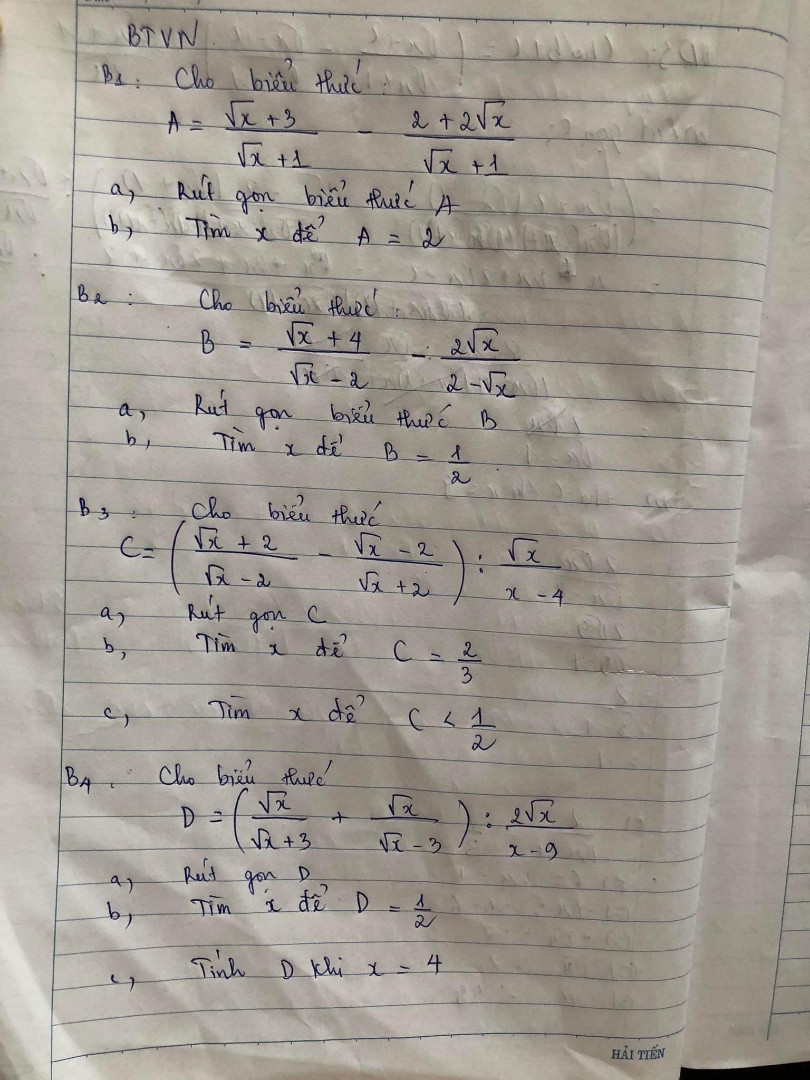 BTVN.
B1: Cho biểu thức:
A = (√x + 3)/(√x + 1) - (2 + 2√x)/(√x + 1)
a, Rút gọn biểu thức A
b, Tìm x để A = 2
B2: Cho biểu thức:
B = (√x + 4)/(√x - 2) - (2√x)/(2 - √x)
a, Rút gọn biểu thức B
b, Tìm x để B = 1/2
B3: Cho biểu thức
C = ((√x + 2)/(√x - 2) - (√x - 2)/(√x + 2)) : √x/(x - 4)
a, Rút gọn C
b, Tìm x để C = 2/3
c, Tìm x để C < 1/2
B4: Cho biểu thức
D = (√x/(√x + 3) + √x/(√x - 3)) : 2√x/(x - 9)
a, Rút gọn D
b, Tìm x để D = 1/2
c, Tính D khi x = 4
HẢI TIẾN